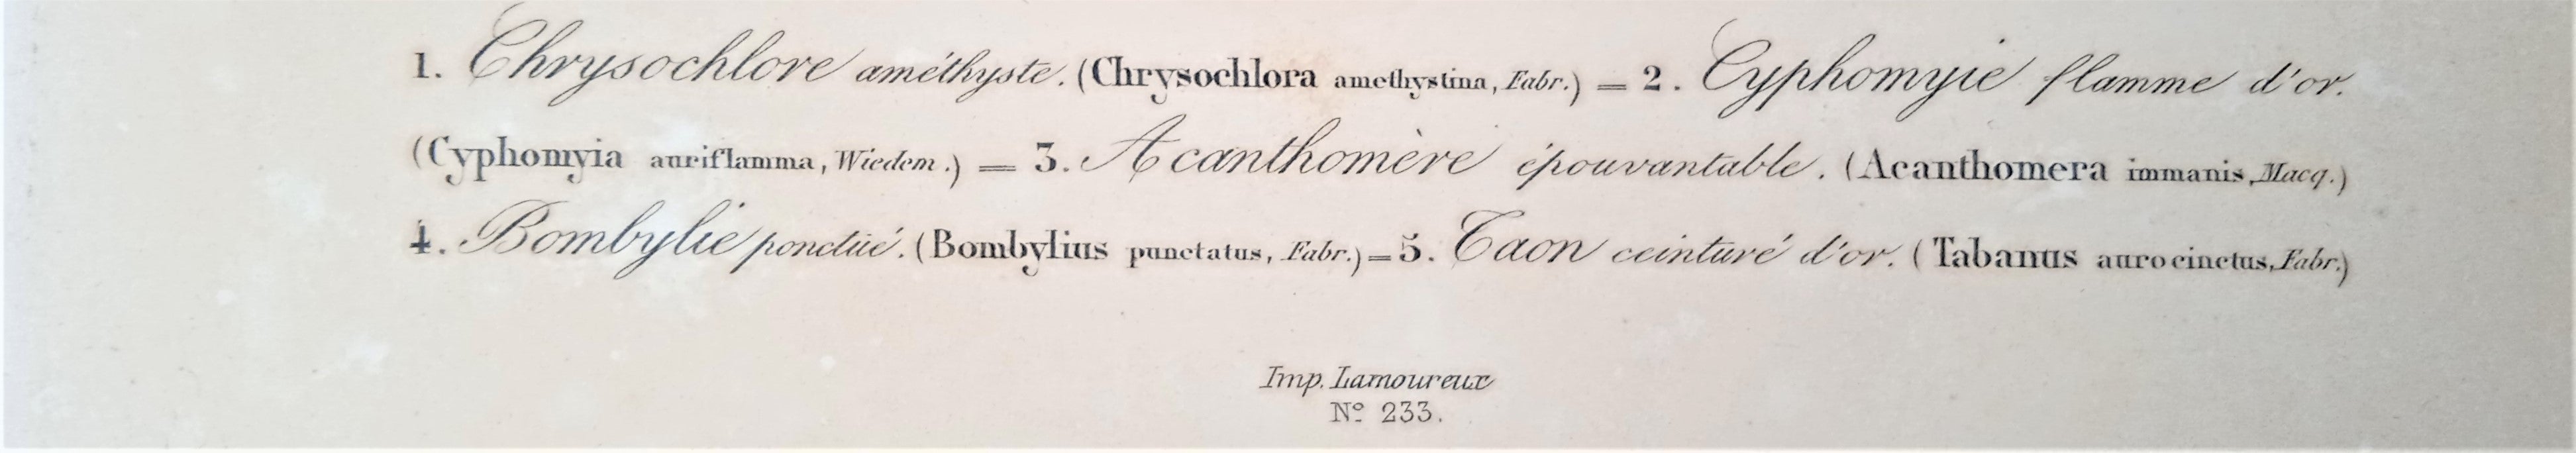 1. Chrysochlore améthyste. (Chrysochlora amethystina, Fabr.) = 2. Cyphomyie flamme d'or.
(Cyphomyia auriflamma, Wiedem.) = 3. Acanthomère épouvantable. (Acanthomera immanis, Macq.)
4. Bombylie ponctué. (Bombylius punctatus, Fabr.) = 5. Taon ceinturé d'or. (Tabanus aurocinctus, Fabr.)
Imp. Lamoureux
Nº 233.